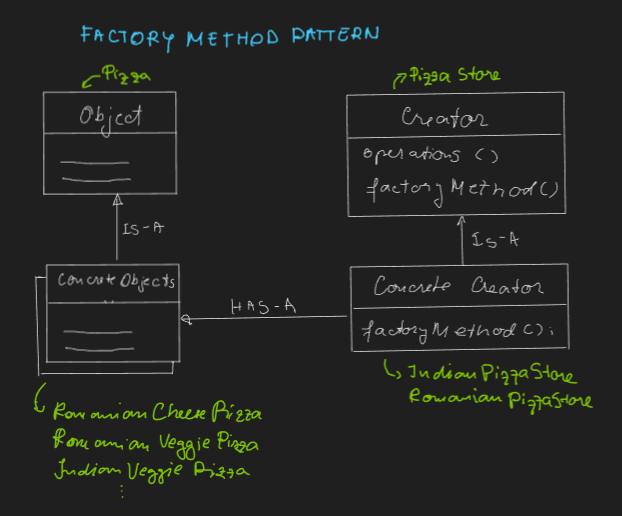 FACTORY METHOD PATTERN
Pizza
Object
IS-A
Concrete Objects
Romanian Cheese Pizza
Romanian Veggie Pizza
Indian Veggie Pizza
⋮
HAS-A
Pizza Store
Creator
operations ()
factoryMethod()
IS-A
Concrete Creator
factoryMethod();
Indian PizzaStore
Romanian PizzaStore